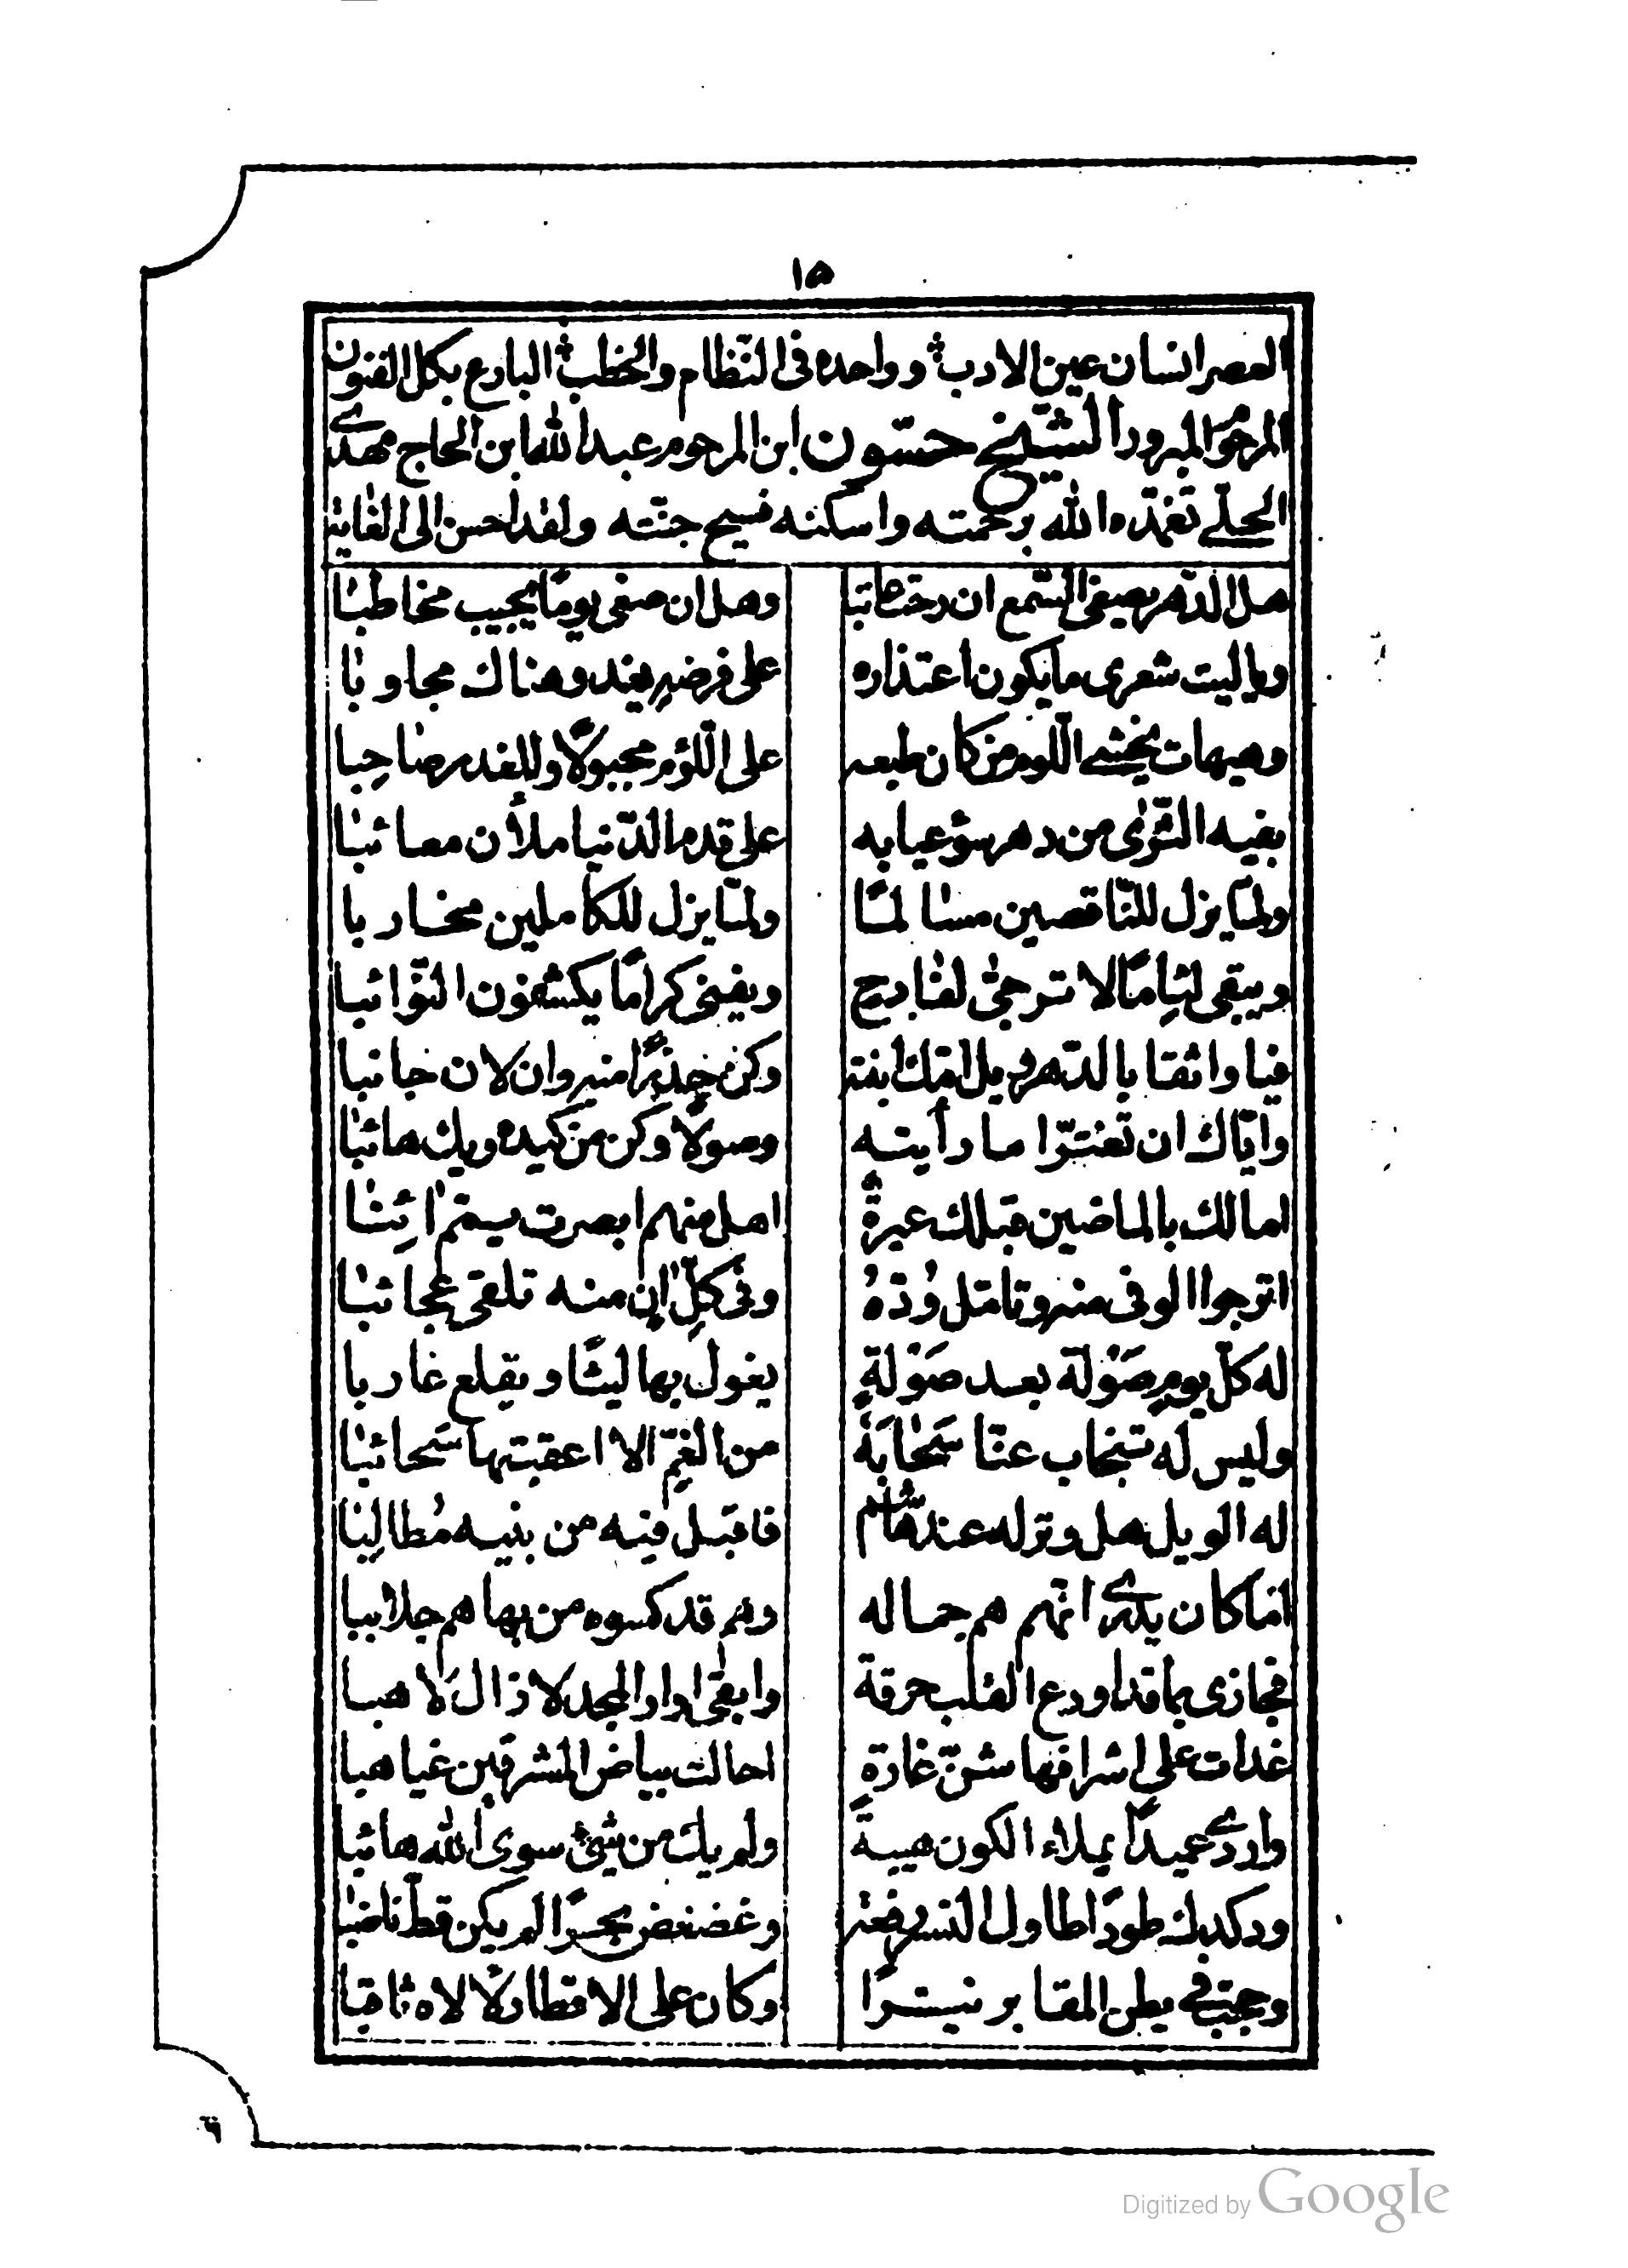 ١٥
العصر انسان عين الادب وواحده فى النّظام والخطب البارع بكل الفنون
المرحوم المبرور الشيخ حسّون ابن المرحوم عبد الله ابن الحاج مهدى
الحلى تغمّده الله برحمته واسكنه فسيح جنّته ولقد احسن الى الغاية
هل الدّهر يصغى السّمع ان رحت عاتبا وهل ان صغى يومًا يجيب مخاطبا
ويا ليت شعرى ما يكون اعتذاره على فرضه يغدو هناك مجاوبا
وهيهات يخشى اللوم من كان طبعه على اللّؤم مجبولًا وللغدر صاحبا
بفيه الثّرى من دهر سوء عيابه على قدم الدّنيا ملأن مصائبا
ولمّا يزل للنّاقصين مسالمًا ولمّا يزل للكاملين محاربا
ويبقى لئامًا لا ترجّى لفادح ويفنى كرامًا يكشفون النّوائبا
فيا واثقا بالدّهر ويل امّك انته وكن حذرًا منه وان لان جانبا
وايّاك ان تغترّ اما رأيته وصولًا وكن من كيده ويك هائبا
امالك بالماضين قبلك عبرةٌ اهل منهم ابصرت ثم ائبا
اترجوا الوفى منه وتامل ودّهُ وفى كلّ ان منه تلقى عجائبا
له كلّ يومٍ صَوْلة بعد صَوْلةٍ يغول بها ليثًا ويقلع غاربا
وليس له تنجاب عنّا سَحَابَةٌ من الغمّ الا اعقبتها سَحائبا
له الويل هل وترله عند هاشم فاقبل فيه من بنيه مُطالِبا
اما كان يدرى انّهم هم جماله وهم قد كسوه من بهاهم جلاببا
فجازى بما قد اودع القلب حرقة وابقى اوار المجد لا زال لاهبا
غدات على اشرافها شنّ غارة احالت بياض المشرقين غياهبا
واردى عميدًا يملاء الكون هيبةً ولم يك من شئ سوى الله هائبا
ودكدك طودًا طاول النسر رفعة وغضغض بحرًا لم يكن قطّ ناضبا
وحجّب فى بطن المقابر نيّرًا وكان على الاقطار لألاه ثاقبا